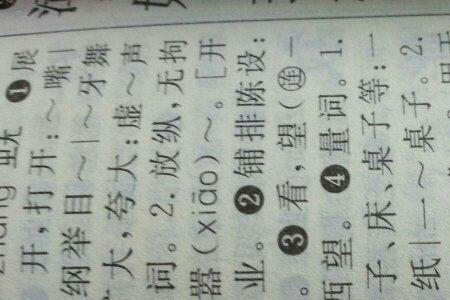 ❶展
开，打开：～嘴｜
纲举目～｜～牙舞
大，夸大：虚～声
词。2. 放纵，无拘
嚣(xiāo)～。[开
业。❷铺排陈设：
。❸看，望(连一
西望。❹量词。1.
子、床、桌子等：一
纸｜一～桌子。2.